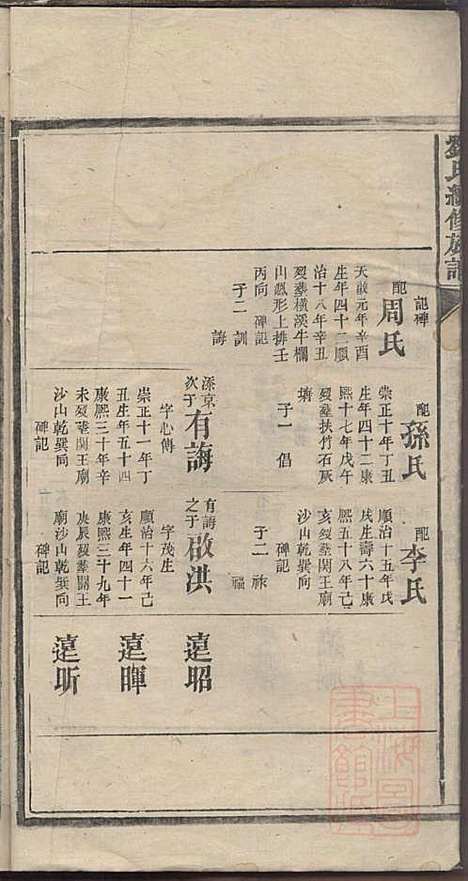 劉氏續修族譜
記碑
配周氏
天啟元年辛酉
生年四十二順
治十八年辛丑
歿葬橫溪牛欄
山鳳形上排壬
丙向 碑記
子二 訓
誨
配孫氏
崇正十年丁丑
生年四十二康
熙十七年戊午
歿葬扶竹石灰
塘
子一 倡
深京次子有誨
字心傳
崇正十一年丁
丑生年五十四
康熙三十年辛
未歿葬関王廟
沙山乾巽向
碑記
配李氏
順治十五年戊
戌生壽六十康
熙五十八年己
亥歿葬関王廟
沙山乾巽向
碑記
子二 祚
福
有誨之子啟洪
字茂生
順治十六年己
亥生年四十一
康熙三十九年
庚辰歿葬関王
廟沙山乾巽向
碑記
遠昭
遠暉
遠昕
上海圖書館藏